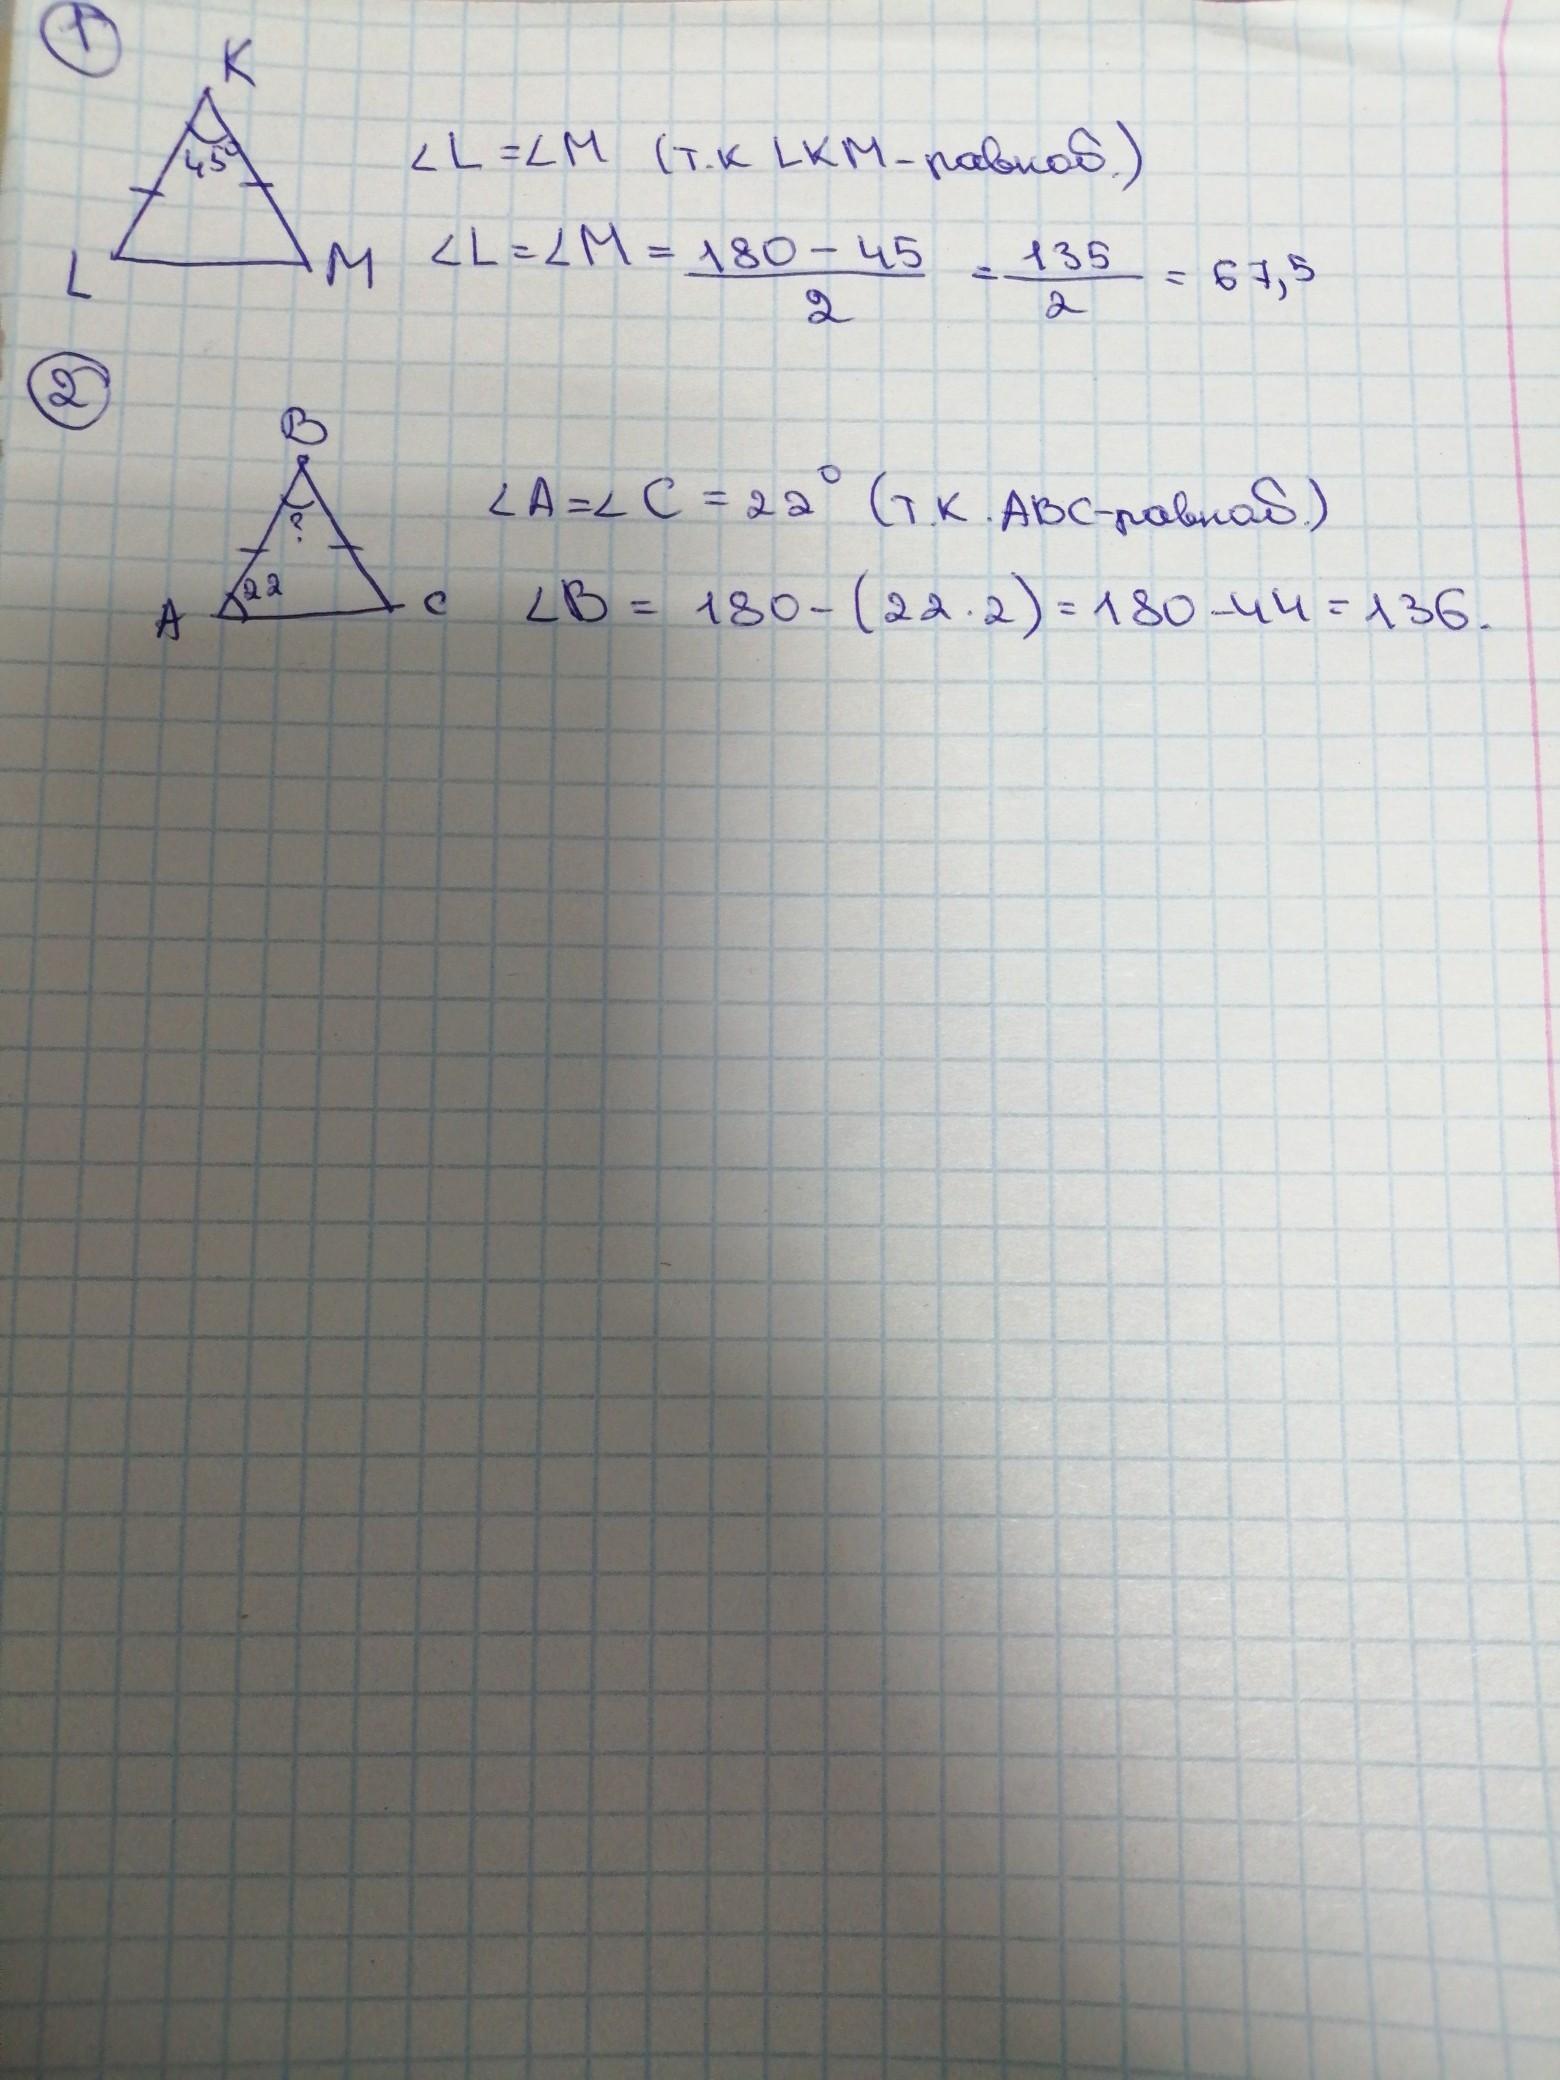 1
K
45°
L
M
∠L = ∠M (т.к LKM-равноб.)
∠L = ∠M = (180 - 45)/2 = 135/2 = 67,5
2
B
?
22
A
C
∠A = ∠C = 22° (т.к. ABC-равноб.)
∠B = 180 - (22 · 2) = 180 - 44 = 136.